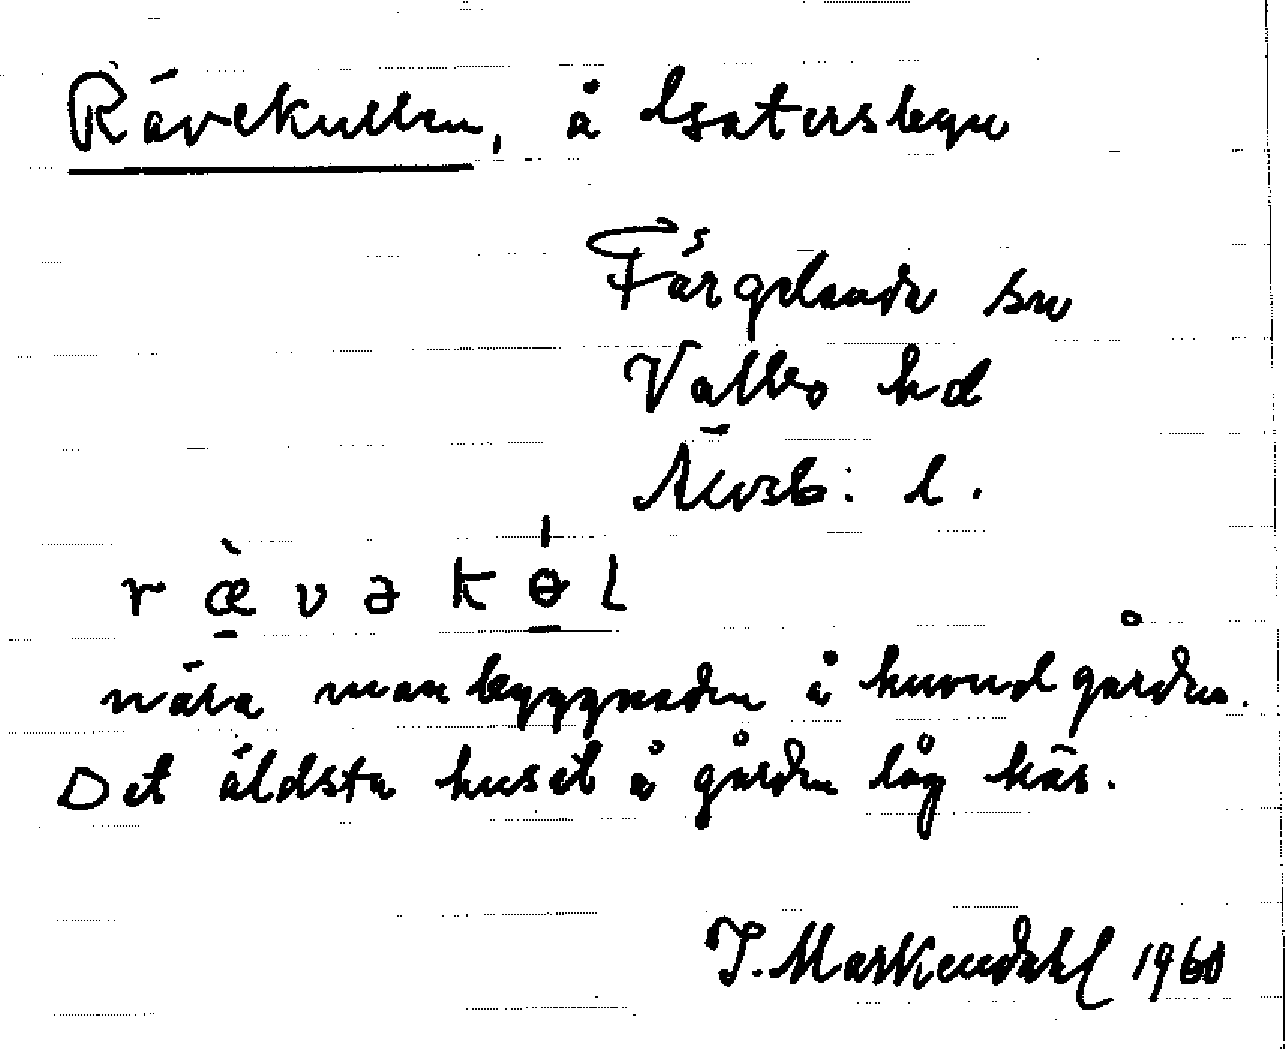 Rävekullen, å Assatersbyn
Färgelanda sn
Valbo hd
Älvsb: l.
r æ̀ v ə k ɵ l
nära manbyggnaden å huvudgården.
Det äldsta huset å gården låg här.
I. Markendahl 1960